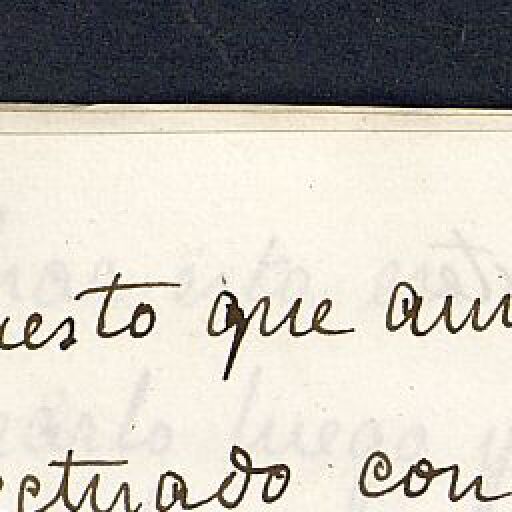 uesto que aun
ectuado con